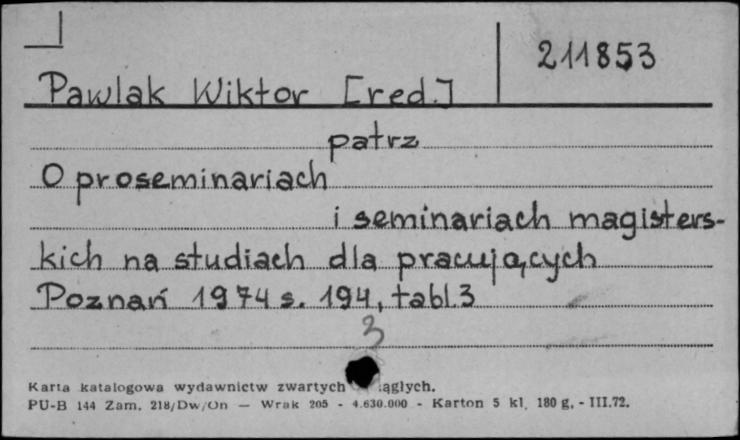 211853
Pawlak Wiktor [red.]
patrz
O proseminariach
i seminariach magisters-
kich na studiach dla pracujących
Poznań 1974 s. 194, tabl. 3
3
Karta katalogowa wydawnictw zwartych ciągłych.
PU-B 144 Zam. 218/Dw/On — Wrak 205 - 4.630.000 - Karton 5 kl. 180 g. - III.72.